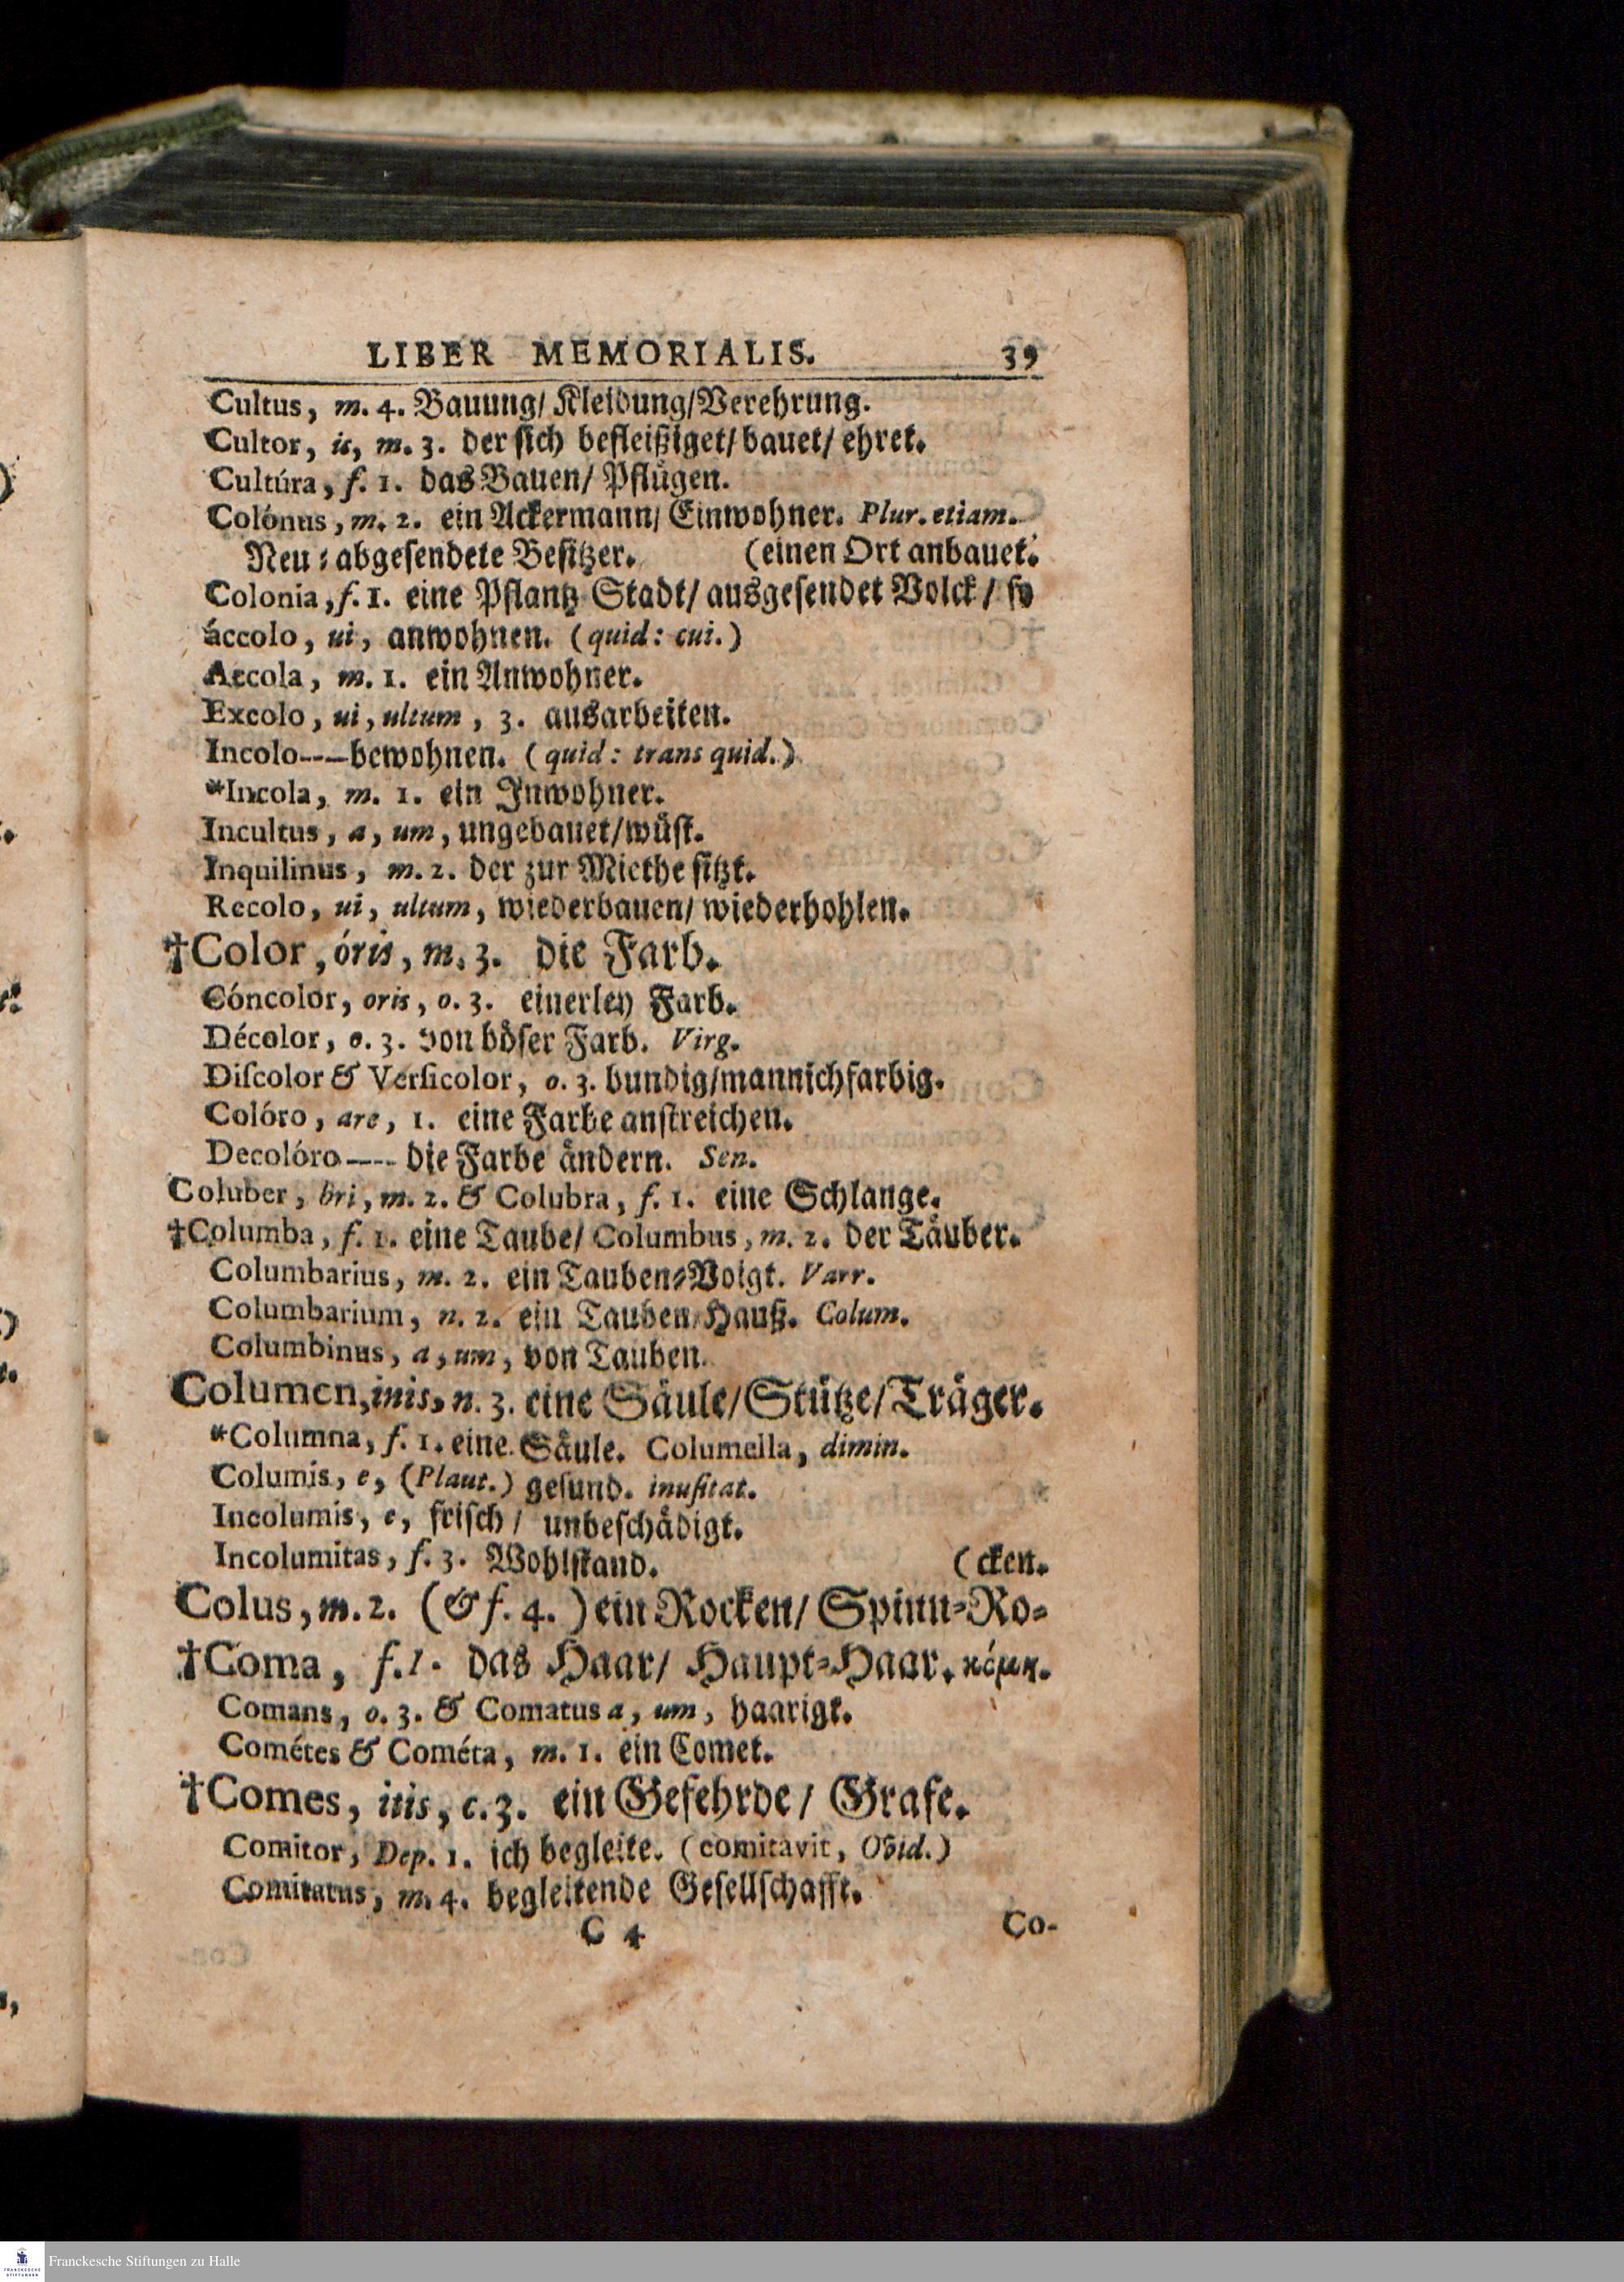 LIBER MEMORIALIS. 39
Cultus, m. 4. Bauung/ Kleidung/Verehrung.
Cultor, is, m. 3. der sich befleißiget/ bauet/ ehret.
Cultúra, f. 1. das Bauen/ Pflügen.
Colónus, m. 2. ein Ackermann/ Einwohner. Plur. etiam.
Neu-abgesendete Besitzer. (einen Ort anbauet.
Colonia, f. 1. eine Pflantz-Stadt/ ausgesendet Volck/ so
áccolo, ui, anwohnen. (quid: cui.)
Accola, m. 1. ein Anwohner.
Excolo, ui, ultum, 3. ausarbeiten.
Incolo---bewohnen. (quid: trans quid.)
*Incola, m. 1. ein Inwohner.
Incultus, a, um, ungebauet/wüst.
Inquilinus, m. 2. der zur Miethe sitzt.
Recolo, ui, ultum, wiederbauen/ wiederhohlen.
†Color, óris, m. 3. die Farb.
Cóncolor, oris, o. 3. einerley Farb.
Décolor, o. 3. von böser Farb. Virg.
Discolor & Versicolor, o. 3. bundig/mannichfarbig.
Colóro, are, 1. eine Farbe anstreichen.
Decolóro---- die Farbe ändern. Sen.
Coluber, bri, m. 2. & Colubra, f. 1. eine Schlange.
†Columba, f. 1. eine Taube/ Columbus, m. 2. der Täuber.
Columbarius, m. 2. ein Tauben-Voigt. Varr.
Columbarium, n. 2. ein Tauben-Hauß. Colum.
Columbinus, a, um, von Tauben.
Columen, inis, n. 3. eine Säule/Stütze/Träger.
*Columna, f. 1. eine Säule. Columella, dimin.
Columis, e, (Plaut.) gesund. inusitat.
Incolumis, e, frisch/ unbeschädigt.
Incolumitas, f. 3. Wohlstand. (cken.
Colus, m. 2. (& f. 4.) ein Rocken/ Spinn-Ro-
†Coma, f. 1. das Haar/ Haupt-Haar. κόμη.
Comans, o. 3. & Comatus a, um, haarigt.
Cométes & Cométa, m. 1. ein Comet.
†Comes, itis, c. 3. ein Gefehrde/ Grafe.
Comitor, Dep. 1. ich begleite. (comitavit, Ovid.)
Comitatus, m. 4. begleitende Gesellschafft.
C 4 Co-
Franckesche Stiftungen zu Halle